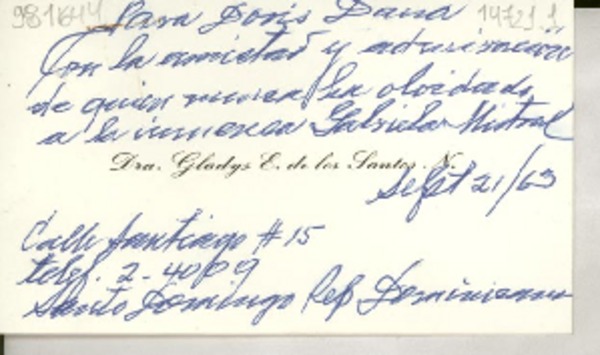 981644 14721.1
Para Doris Dana
Con la amistad y admiración
de quien nunca ha olvidado
a la inmensa Gabriela Mistral
Dra. Gladys E. de los Santos N.
Sept 21/63
Calle Santiago # 15
telef. 2-4009
Santo Domingo Rep Dominicana